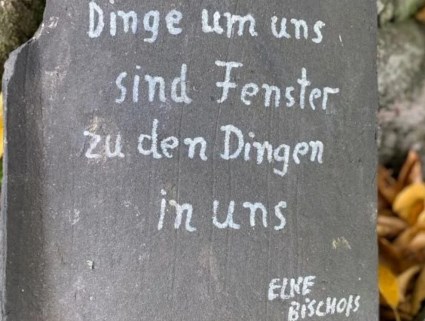 Dinge um uns
sind Fenster
zu den Dingen
in uns
ELKE
BiSCHOfS